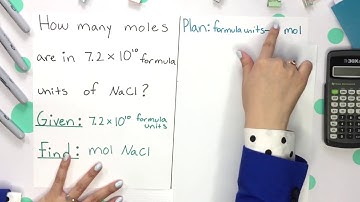 How many moles
are in 7.2 × 10¹⁰ formula
units of NaCl?
Given: 7.2 × 10¹⁰ formula units
Find: mol NaCl
Plan: formula units mol